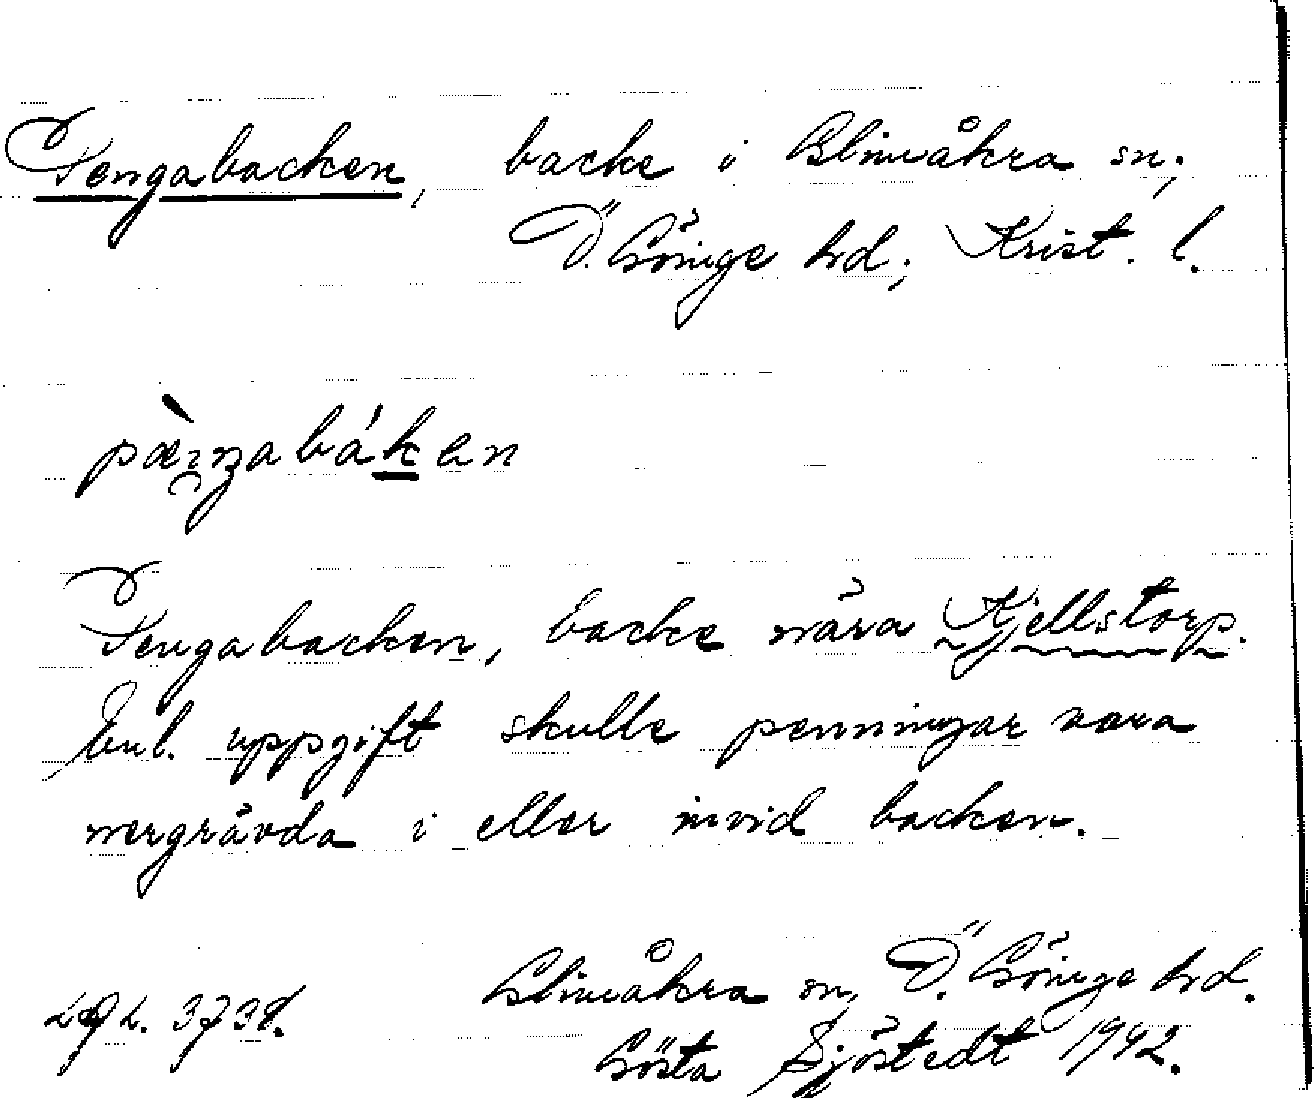 Pengabacken, backe i Glimåkra sn;
Ö. Göinge hd; Krist. l.
pæ̀ŋabákan
Pengabacken, backe nära Kjellstorp.
Enl. uppgift skulle penningar vara
nergrävda i eller invid backen.
Glimåkra sn, Ö. Göinge hd.
Gösta Sjöstedt 1942.